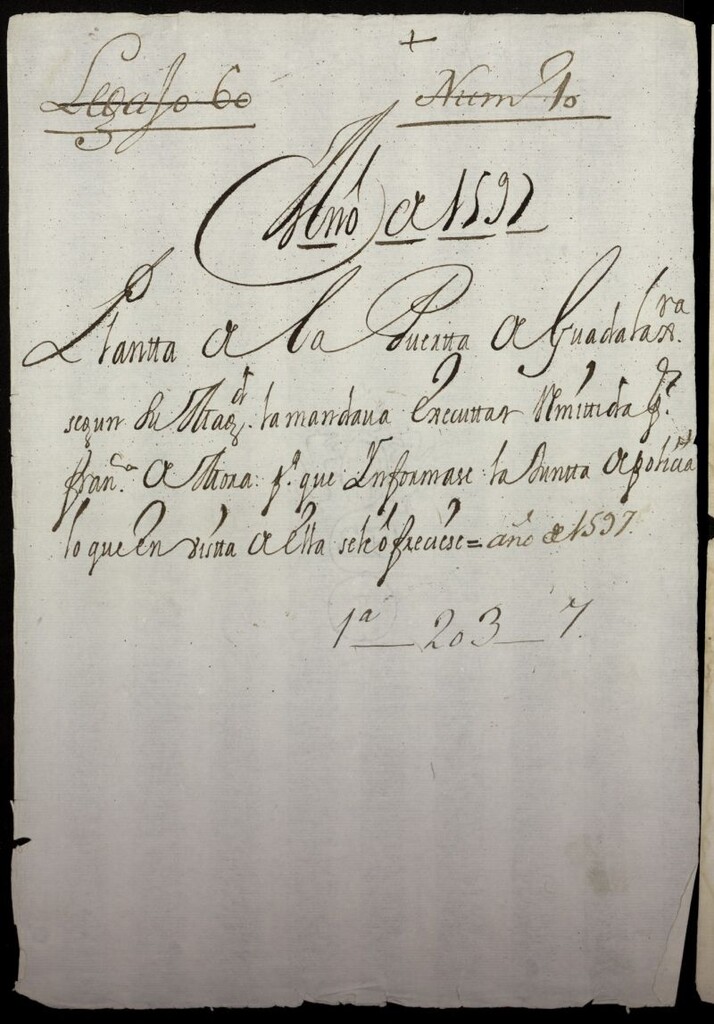 +
Legajo 60 Num.º 10
Año de 1597
Planta de la Puertta de Guadalax.ra
segun Su Mag.d la mandava Executtar Remittida p.r
Fran.co de Mora p.a que Informase la Juntta de policia
lo que En vistta de Ella sele ofreciese = año de 1597.
1ª — 203 — 7.